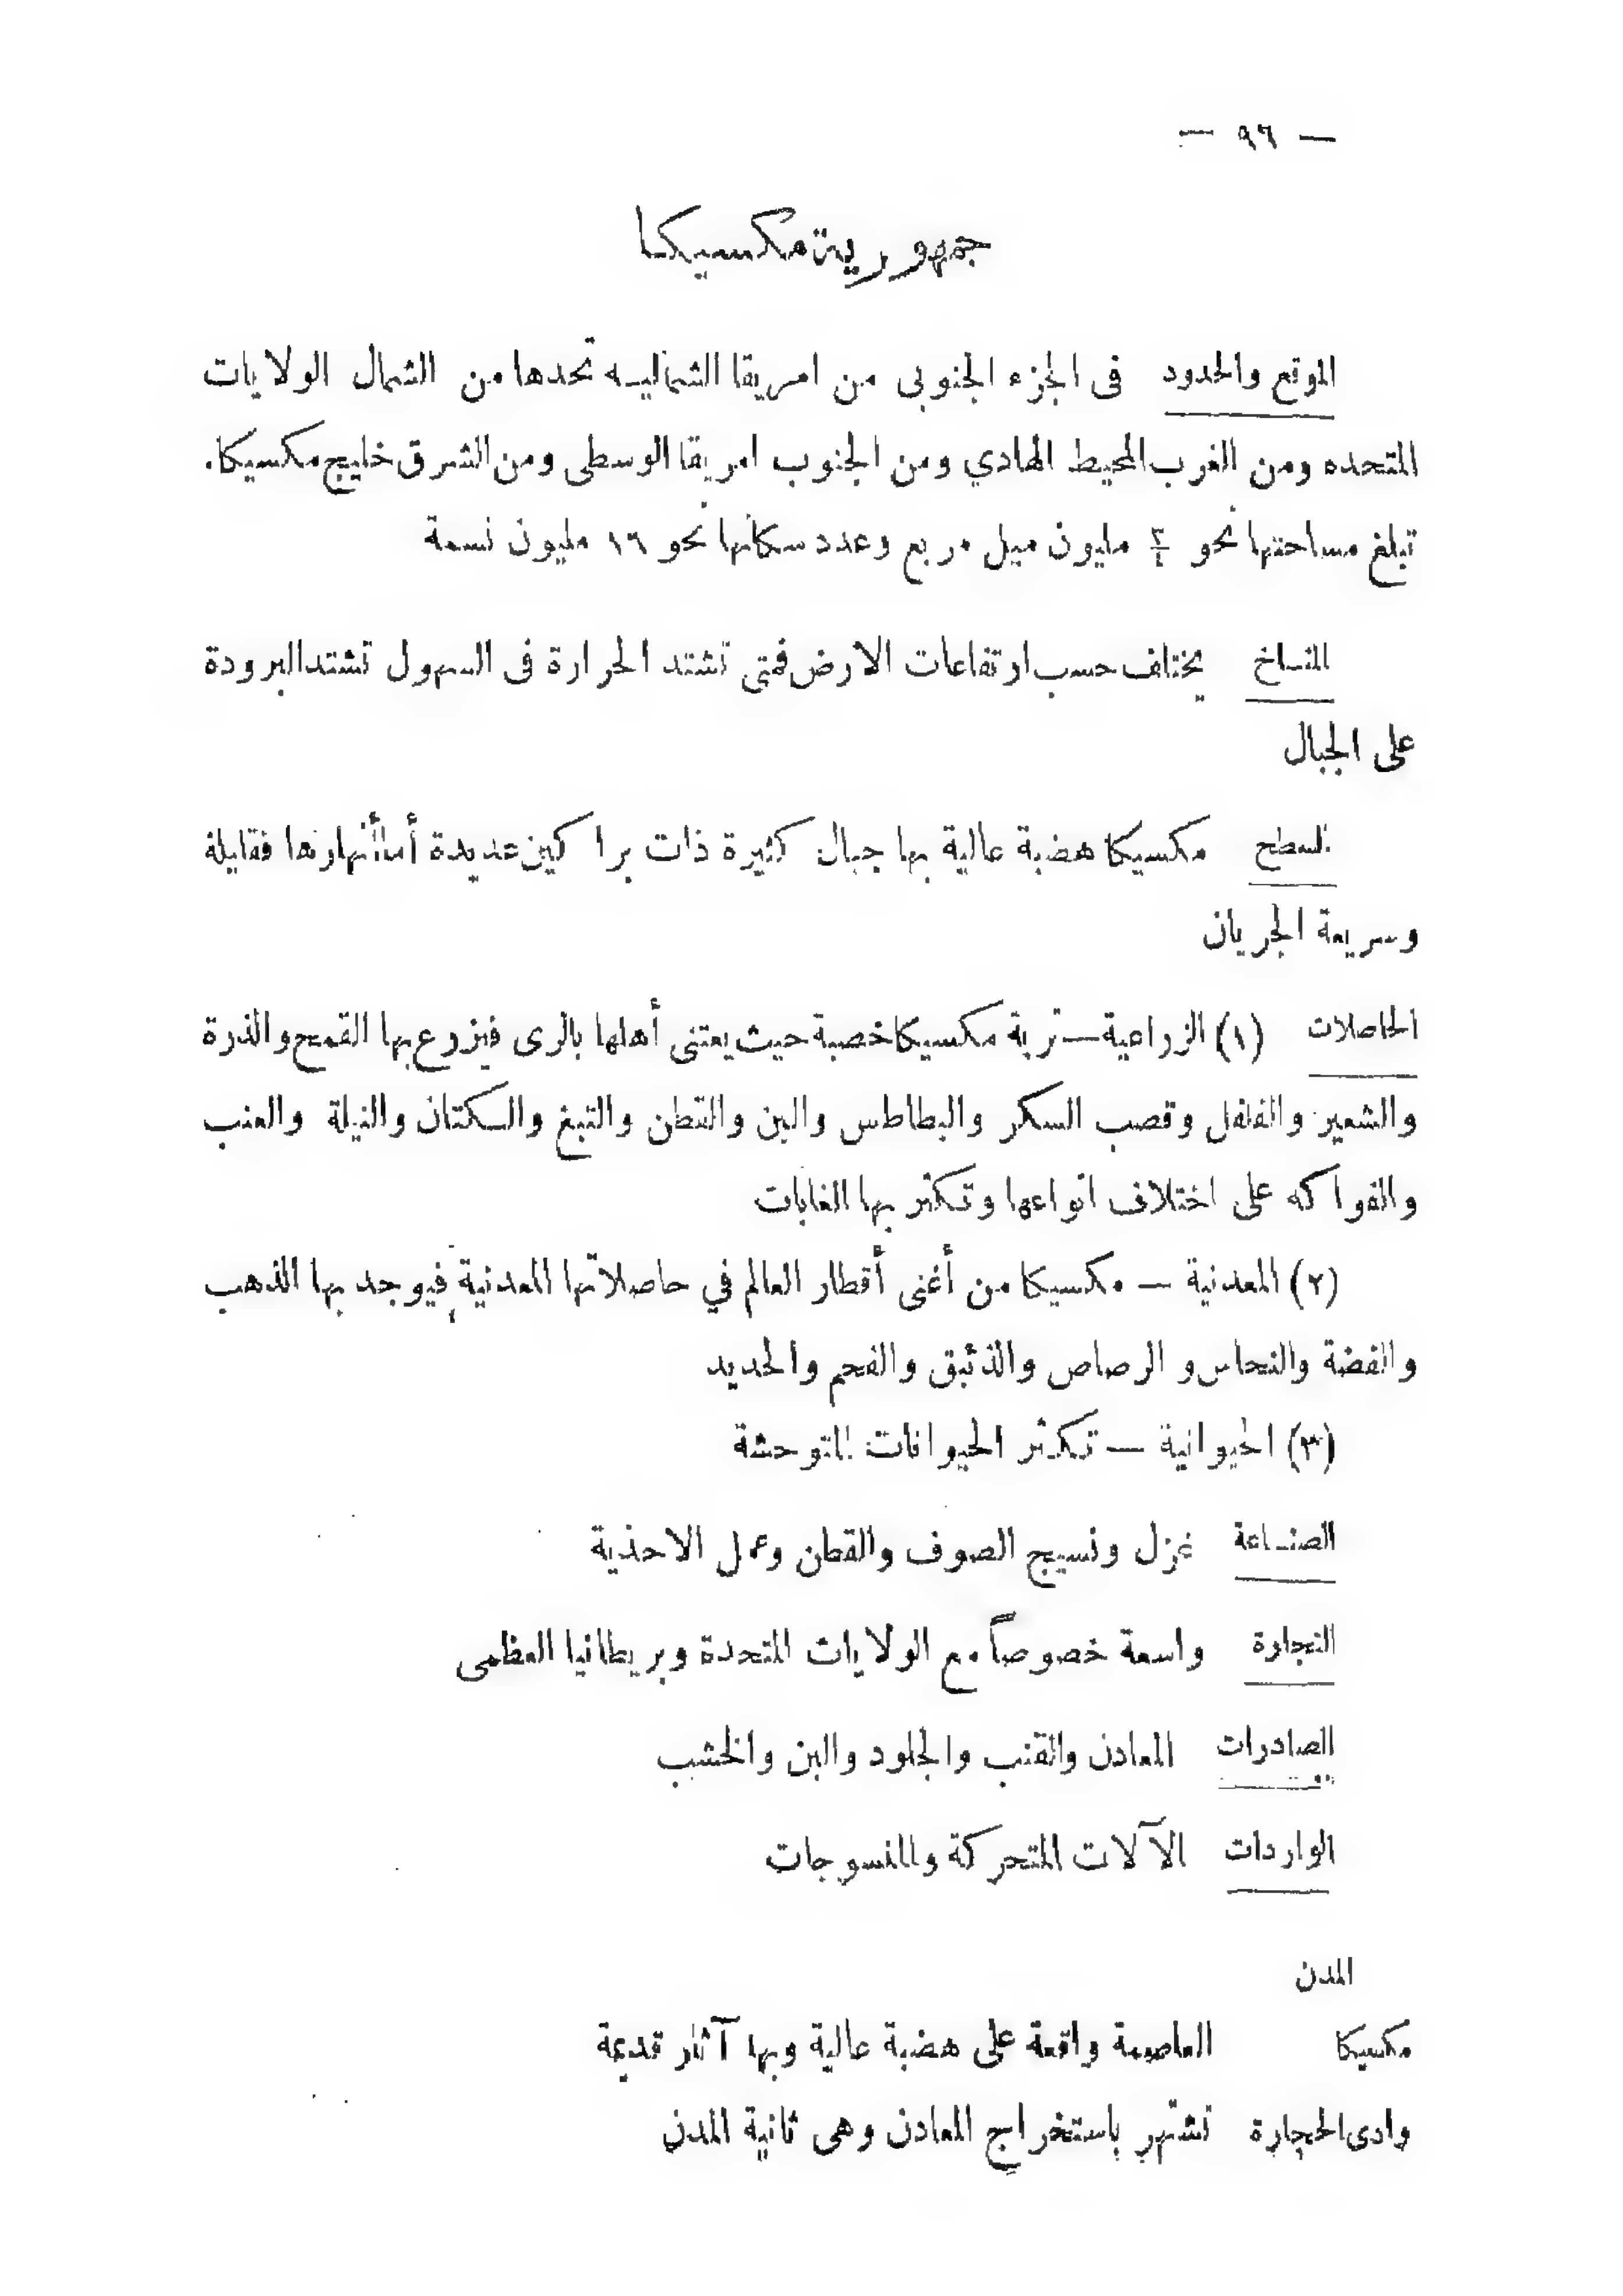 — ٩٦ —
جمهورية مكسيكا
الموقع والحدود فى الجزء الجنوبى من امريقا الشماليه تحدها من الشمال الولايات
المتحده ومن الغرب المحيط الهادي ومن الجنوب امريقا الوسطى ومن الشرق خليج مكسيكا.
تبلغ مساحتها نحو ٣/٤ مليون ميل مربع وعدد سكانها نحو ١٦ مليون نسمة
المناخ يختلف حسب ارتفاعات الارض فمتى تشتد الحرارة فى السهول تشتد البرودة
على الجبال
السطح مكسيكا هضبة عالية بها جبال كثيرة ذات براكين عديدة أما أنهارها فقليلة
وسريعة الجريان
الحاصلات (١) الزراعية — تربة مكسيكا خصبة حيث يعتنى أهلها بالرى فيزرع بها القمح والذرة
والشعير والفلفل وقصب السكر والبطاطس والبن والقطن والتبغ والكتان والنيلة والعنب
والفواكه على اختلاف انواعها وتكثر بها الغابات
(٢) المعدنية — مكسيكا من أغنى أقطار العالم في حاصلاتها المعدنية فيوجد بها الذهب
والفضة والنحاس والرصاص والذئبق والفحم والحديد
(٣) الحيوانية — تكثر الحيوانات المتوحشة
الصناعة غزل ونسيج الصوف والقطن وعمل الاحذية
التجارة واسعة خصوصاً مع الولايات المتحدة وبريطانيا العظمى
الصادرات المعادن والقنب والجلود والبن والخشب
الواردات الآلات المتحركة والمنسوجات
المدن
مكسيكا العاصمة واقعة على هضبة عالية وبها آثار قديمة
وادى الحجارة تشتهر باستخراج المعادن وهى ثانية المدن